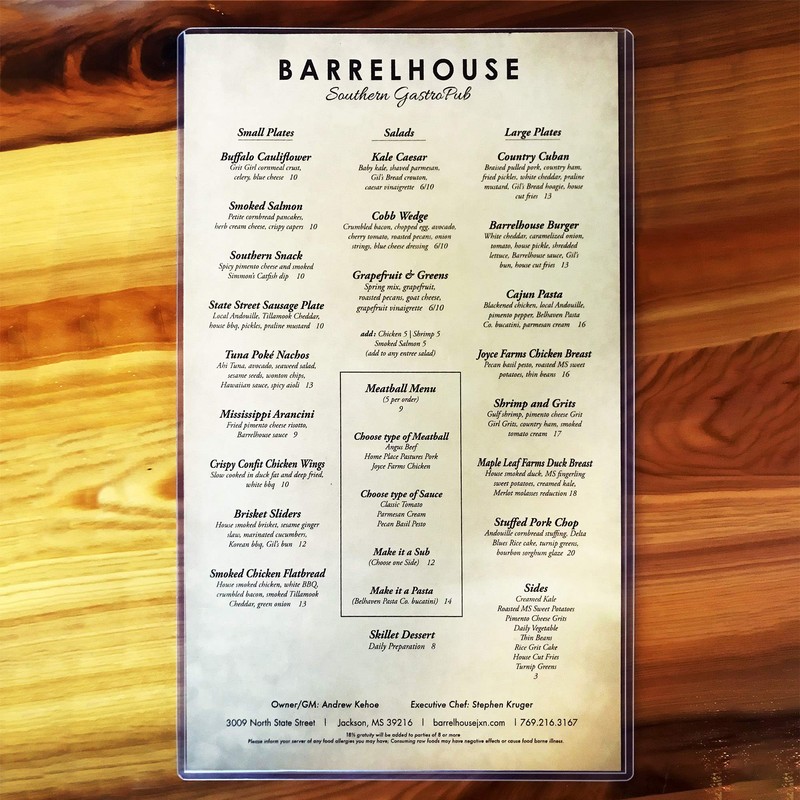 BARRELHOUSE
Southern GastroPub
Small Plates
Buffalo Cauliflower
Grit Girl cornmeal crust,
celery, blue cheese 10
Smoked Salmon
Petite cornbread pancakes,
herb cream cheese, crispy capers 10
Southern Snack
Spicy pimento cheese and smoked
Simmon's Catfish dip 10
State Street Sausage Plate
Local Andouille, Tillamook Cheddar,
house bbq, pickles, praline mustard 10
Tuna Poké Nachos
Ahi Tuna, avocado, seaweed salad,
sesame seeds, wonton chips,
Hawaiian sauce, spicy aioli 13
Mississippi Arancini
Fried pimento cheese risotto,
Barrelhouse sauce 9
Crispy Confit Chicken Wings
Slow cooked in duck fat and deep fried,
white bbq 10
Brisket Sliders
House smoked brisket, sesame ginger
slaw, marinated cucumbers,
Korean bbq, Gil's bun 12
Smoked Chicken Flatbread
House smoked chicken, white BBQ,
crumbled bacon, smoked Tillamook
Cheddar, green onion 13
Salads
Kale Caesar
Baby kale, shaved parmesan,
Gil's Bread crouton,
caesar vinaigrette 6/10
Cobb Wedge
Crumbled bacon, chopped egg, avocado,
cherry tomato, roasted pecans, onion
strings, blue cheese dressing 6/10
Grapefruit & Greens
Spring mix, grapefruit,
roasted pecans, goat cheese,
grapefruit vinaigrette 6/10
add: Chicken 5 | Shrimp 5
Smoked Salmon 5
(add to any entree salad)
Meatball Menu
(5 per order)
9
Choose type of Meatball
Angus Beef
Home Place Pastures Pork
Joyce Farms Chicken
Choose type of Sauce
Classic Tomato
Parmesan Cream
Pecan Basil Pesto
Make it a Sub
(Choose one Side) 12
Make it a Pasta
(Belhaven Pasta Co. bucatini) 14
Skillet Dessert
Daily Preparation 8
Large Plates
Country Cuban
Braised pulled pork, country ham,
fried pickles, white cheddar, praline
mustard, Gil's Bread hoagie, house
cut fries 13
Barrelhouse Burger
White cheddar, caramelized onion,
tomato, house pickle, shredded
lettuce, Barrelhouse sauce, Gil's
bun, house cut fries 13
Cajun Pasta
Blackened chicken, local Andouille,
pimento pepper, Belhaven Pasta
Co. bucatini, parmesan cream 16
Joyce Farms Chicken Breast
Pecan basil pesto, roasted MS sweet
potatoes, thin beans 16
Shrimp and Grits
Gulf shrimp, pimento cheese Grit
Girl Grits, country ham, smoked
tomato cream 17
Maple Leaf Farms Duck Breast
House smoked duck, MS fingerling
sweet potatoes, creamed kale,
Merlot molasses reduction 18
Stuffed Pork Chop
Andouille cornbread stuffing, Delta
Blues Rice cake, turnip greens,
bourbon sorghum glaze 20
Sides
Creamed Kale
Roasted MS Sweet Potatoes
Pimento Cheese Grits
Daily Vegetable
Thin Beans
Rice Grit Cake
House Cut Fries
Turnip Greens
3
Owner/GM: Andrew Kehoe Executive Chef: Stephen Kruger
3009 North State Street | Jackson, MS 39216 | barrelhousejxn.com | 769.216.3167
18% gratuity will be added to parties of 8 or more
Please inform your server of any food allergies you may have, Consuming raw foods may have negative effects or cause food borne illness.